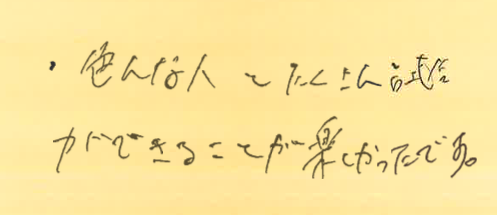 ・色んな人とたくさん試合
ができることが楽しかったです。